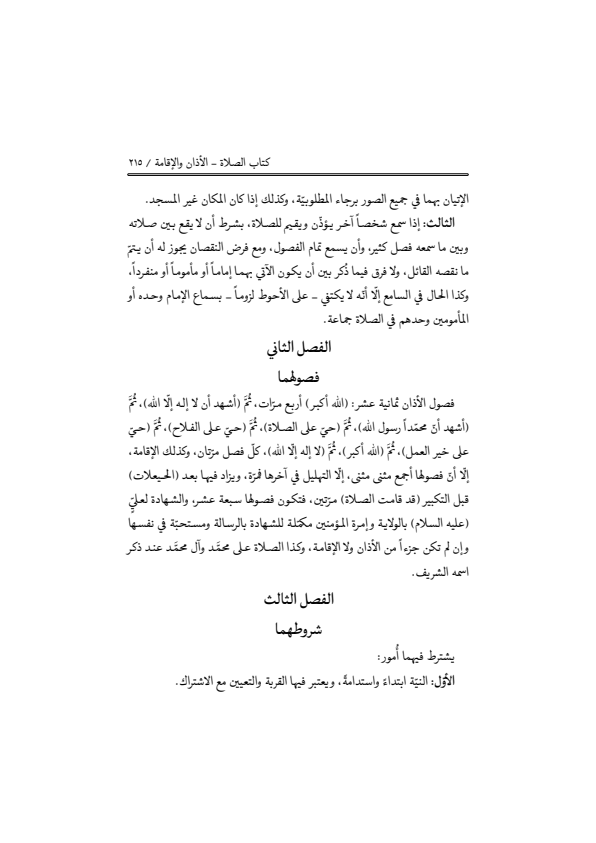 كتاب الصلاة ـ الأذان والإقامة / ٢١٥
الإتيان بهما في جميع الصور برجاء المطلوبيّة، وكذلك إذا كان المكان غير المسجد.
الثالث: إذا سمع شخصاً آخر يؤذّن ويقيم للصلاة، بشرط أن لا يقع بين صلاته
وبين ما سمعه فصل كثير، وأن يسمع تمام الفصول، ومع فرض النقصان يجوز له أن يتمّ
ما نقصه القائل، ولا فرق فيما ذُكر بين أن يكون الآتي بهما إماماً أو مأموماً أو منفرداً،
وكذا الحال في السامع إلّا أنّه لا يكتفي ـ على الأحوط لزوماً ـ بسماع الإمام وحده أو
المأمومين وحدهم في الصلاة جماعة.
الفصل الثاني
فصولهما
فصول الأذان ثمانية عشر: (الله أكبر) أربع مرّات، ثُمَّ (أشهد أن لا إله إلّا الله)، ثُمَّ
(أشهد أنّ محمّداً رسول الله)، ثُمَّ (حيّ على الصلاة)، ثُمَّ (حيّ على الفلاح)، ثُمَّ (حيّ
على خير العمل)، ثُمَّ (الله أكبر)، ثُمَّ (لا إله إلّا الله)، كلّ فصل مرّتان، وكذلك الإقامة،
إلّا أنّ فصولها أجمع مثنى مثنى، إلّا التهليل في آخرها فمرّة، ويزاد فيها بعد (الحيعلات)
قبل التكبير (قد قامت الصلاة) مرّتين، فتكون فصولها سبعة عشر، والشهادة لعليّ
(عليه السلام) بالولاية وإمرة المؤمنين مكمّلة للشهادة بالرسالة ومستحبّة في نفسها
وإن لم تكن جزءاً من الأذان ولا الإقامة، وكذا الصلاة على محمَّد وآل محمَّد عند ذكر
اسمه الشريف.
الفصل الثالث
شروطهما
يشترط فيهما أُمور:
الأوّل: النيّة ابتداءً واستدامةً، ويعتبر فيها القربة والتعيين مع الاشتراك.